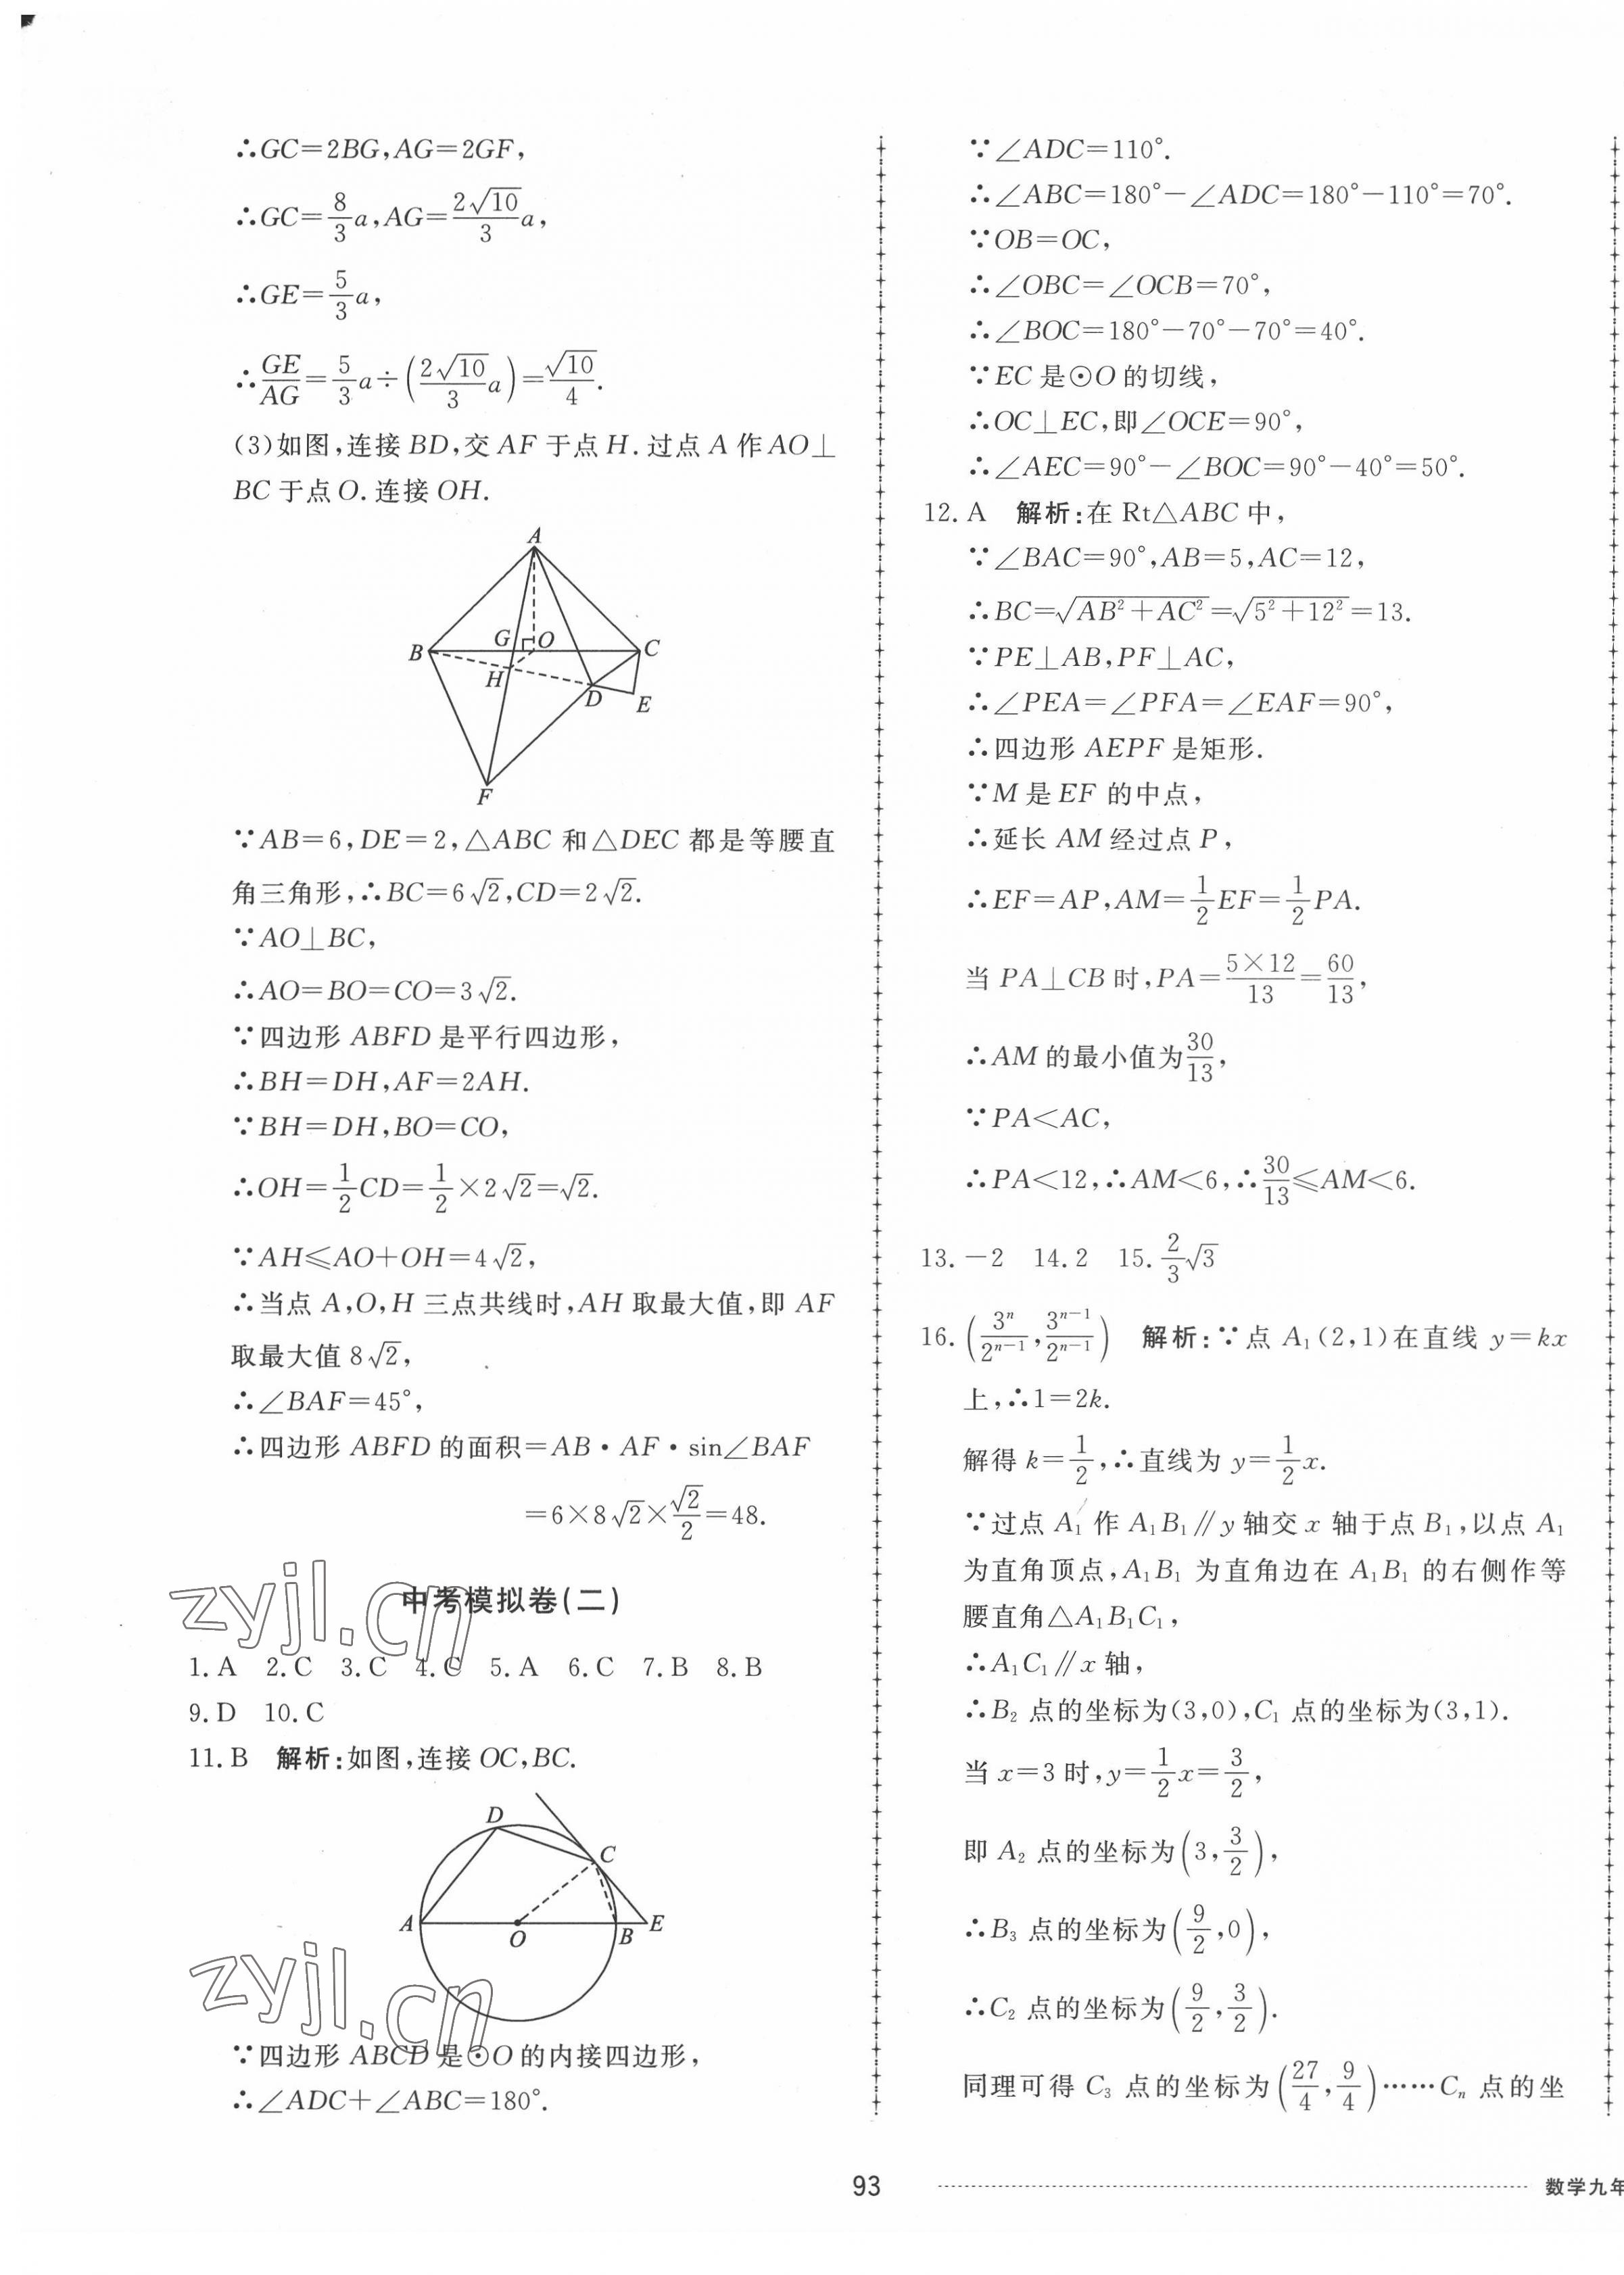 ∴GC=2BG,AG=2GF,
∴GC=8/3a,AG=2√10/3a,
∴GE=5/3a,
∴GE/AG=5/3a÷(2√10/3a)=√10/4.
(3)如图,连接BD,交AF于点H.过点A作AO⊥
BC于点O.连接OH.
A
B
G
O
C
H
D
E
F
∵AB=6,DE=2,△ABC和△DEC都是等腰直
角三角形,∴BC=6√2,CD=2√2.
∵AO⊥BC,
∴AO=BO=CO=3√2.
∵四边形ABFD是平行四边形,
∴BH=DH,AF=2AH.
∵BH=DH,BO=CO,
∴OH=1/2CD=1/2×2√2=√2.
∵AH≤AO+OH=4√2,
∴当点A,O,H三点共线时,AH取最大值,即AF
取最大值8√2,
∴∠BAF=45°,
∴四边形ABFD的面积=AB·AF·sin∠BAF
=6×8√2×√2/2=48.
中考模拟卷(二)
1.A 2.C 3.C 4.C 5.A 6.C 7.B 8.B
9.D 10.C
11.B 解析:如图,连接OC,BC.
D
C
A
O
B
E
∵四边形ABCD是⊙O的内接四边形,
∴∠ADC+∠ABC=180°.
∵∠ADC=110°.
∴∠ABC=180°-∠ADC=180°-110°=70°.
∵OB=OC,
∴∠OBC=∠OCB=70°,
∴∠BOC=180°-70°-70°=40°.
∵EC是⊙O的切线,
∴OC⊥EC,即∠OCE=90°,
∴∠AEC=90°-∠BOC=90°-40°=50°.
12.A 解析:在Rt△ABC中,
∵∠BAC=90°,AB=5,AC=12,
∴BC=√(AB²+AC²)=√(5²+12²)=13.
∵PE⊥AB,PF⊥AC,
∴∠PEA=∠PFA=∠EAF=90°,
∴四边形AEPF是矩形.
∵M是EF的中点,
∴延长AM经过点P,
∴EF=AP,AM=1/2EF=1/2PA.
当PA⊥CB时,PA=5×12/13=60/13,
∴AM的最小值为30/13,
∵PA<AC,
∴PA<12,∴AM<6,∴30/13≤AM<6.
13.-2 14.2 15.2/3√3
16.(3ⁿ/2ⁿ⁻¹,3ⁿ⁻¹/2ⁿ⁻¹) 解析:∵点A₁(2,1)在直线y=kx
上,∴1=2k.
解得k=1/2,∴直线为y=1/2x.
∵过点A₁作A₁B₁∥y轴交x轴于点B₁,以点A₁
为直角顶点,A₁B₁为直角边在A₁B₁的右侧作等
腰直角△A₁B₁C₁,
∴A₁C₁∥x轴,
∴B₂点的坐标为(3,0),C₁点的坐标为(3,1).
当x=3时,y=1/2x=3/2,
即A₂点的坐标为(3,3/2),
∴B₃点的坐标为(9/2,0),
∴C₂点的坐标为(9/2,3/2).
同理可得C₃点的坐标为(27/4,9/4)……Cₙ点的坐
93
数学九年
zyjl.cn
zyjl.cn